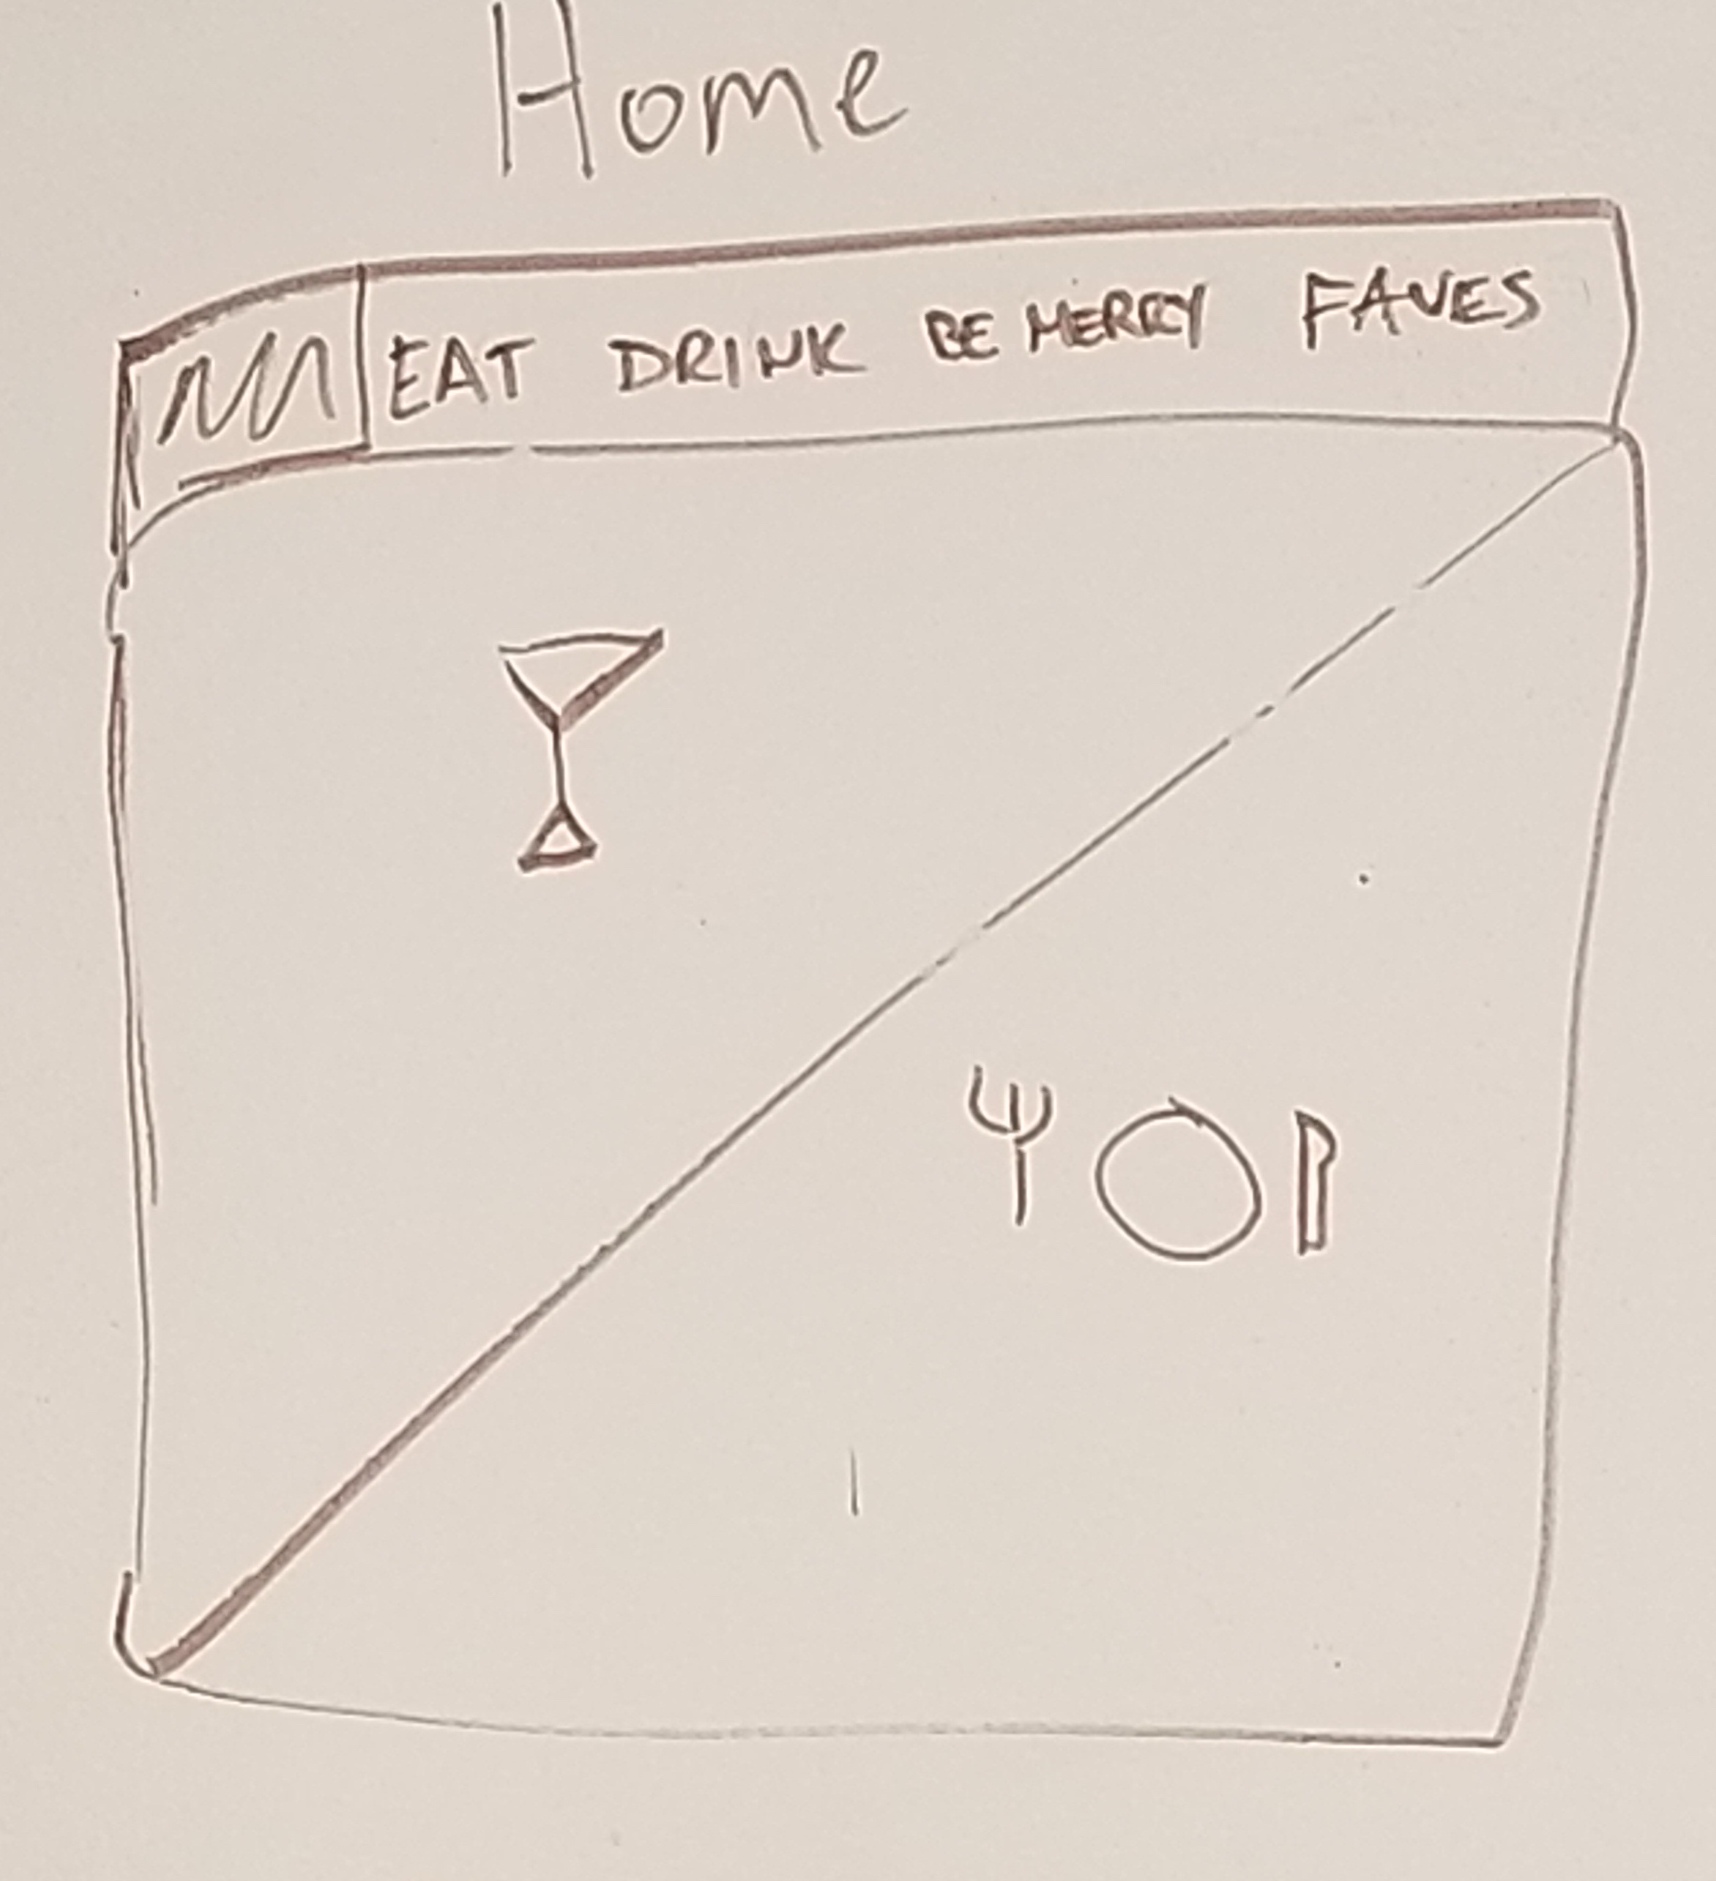 Home
EAT DRINK BE MERRY FAVES